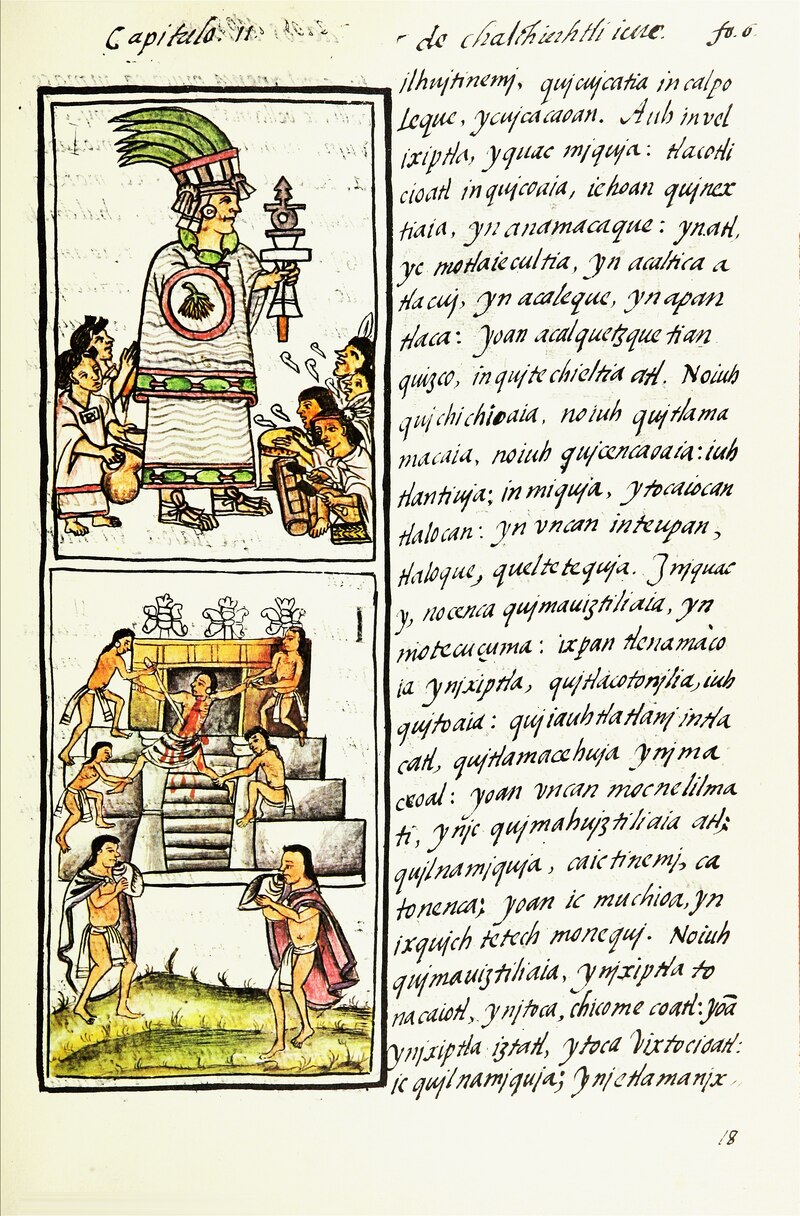 Capitulo. 11
de chalchiuhtli icue. fo. 6.
ilhujtinemj, qujcujcatia in calpo
leque, ycujcacaoan. Auh in vel
ixiptla, yquac mjquja: tlacotli
cioatl in qujcoaia, iehoan qujnex
tiaia, yn anamacaque: yn atl,
yc motlaiecultia, yn acaltica a
tlacuj, yn acaleque, yn apan
tlaca: yoan acalquetzque tian
quizco, in qujtechieltia atl. Noiuh
qujchichioaia, noiuh qujtlama
macaia, noiuh qujcencaoaia: iuh
tlantiuja; in mjquja, ytocaiocan
tlalocan: yn vncan inteupan,
tlaloque, queltetequja. Injquac
y, nocenca qujmauiztiliaia, yn
motecuçuma: ixpan tlenamaco
ia ynjxiptla, qujtlacotonjlia, iuh
qujtoaia: qujiauhtlatlanj intla
catl, qujtlamacehuja ynj ma
ceoal: yoan vncan mocnelilma
ti, ynjc qujmahujztiliaia atl;
qujlnamjquja, ca ic tinemj, ca
tonenca; yoan ic muchioa, yn
ixqujch tetech monequj. Noiuh
qujmauiztiliaia, ynjxiptla to
nacaiotl, ynjtoca, chicome coatl: yoā
ynjxiptla iztatl, ytoca vixtocioatl:
ic qujlnamjquja; ynjetlamanjx
18